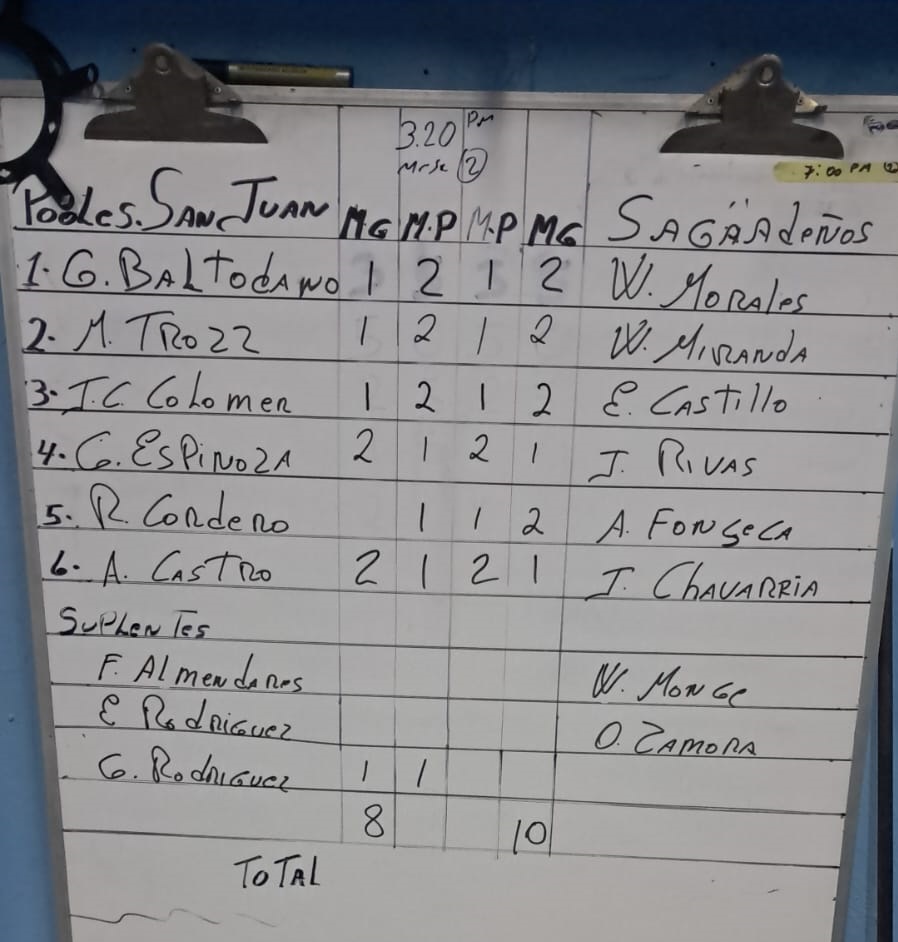 3.20 PM
7:00 PM
Pooles. SAN JUAN MG M.P M.P MG SAGÄADEÑOS
1. G. BALTODANO 1 2 1 2 W. MORALES
2. M. TROZZ 1 2 1 2 W. MIRANDA
3. J.C. COLOMER 1 2 1 2 E. CASTILLO
4. G. ESPINOZA 2 1 2 1 J. RIVAS
5. R. CORDERO 1 1 2 A. FONSECA
6. A. CASTRO 2 1 2 1 J. CHAVARRIA
SUPLENTES
F. ALMENDARES W. MONGE
E RODRIGUEZ O. ZAMORA
G. RODRIGUEZ 1 1
8 10
TOTAL